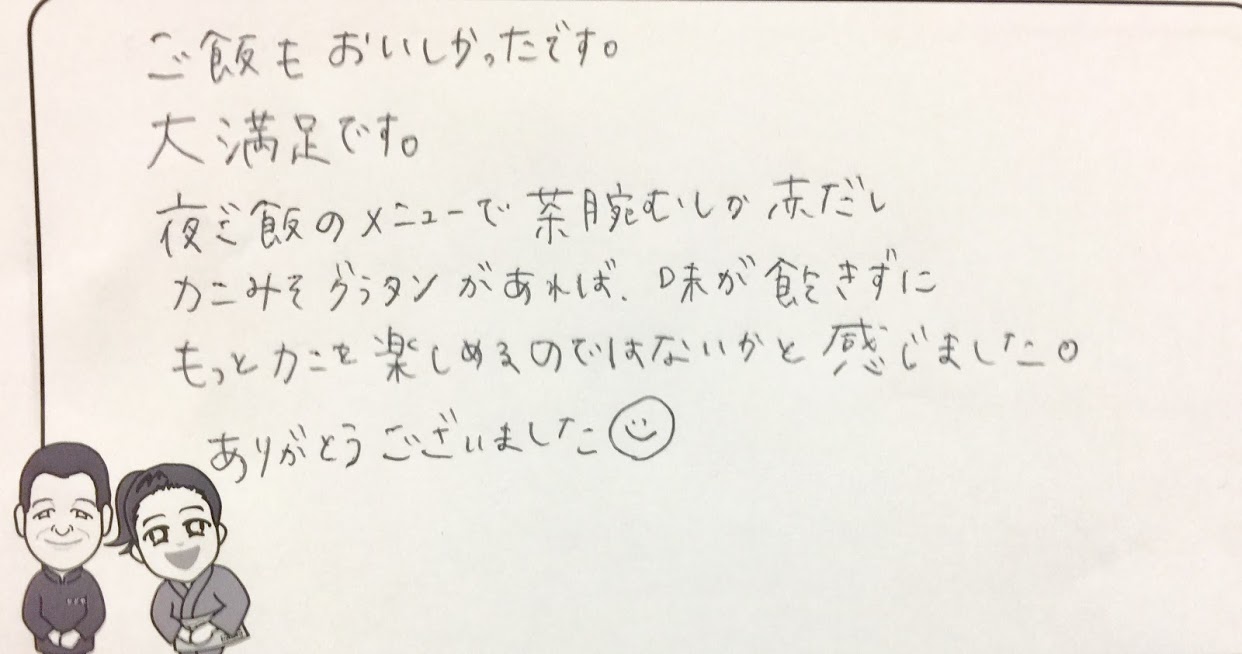 ご飯もおいしかったです。
大満足です。
夜ご飯のメニューで茶腕むしか赤だし
カニみそグラタンがあれば、味が飽きずに
もっとカニを楽しめるのではないかと感じました。
ありがとうございました☺